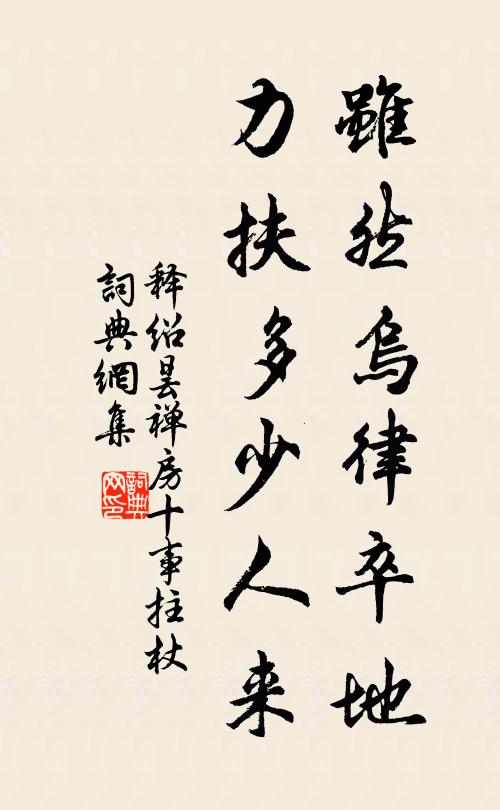 雖然烏律卒地
力扶多少人来
释绍昙禅房十事拄杖
詞典網集
詞典网印